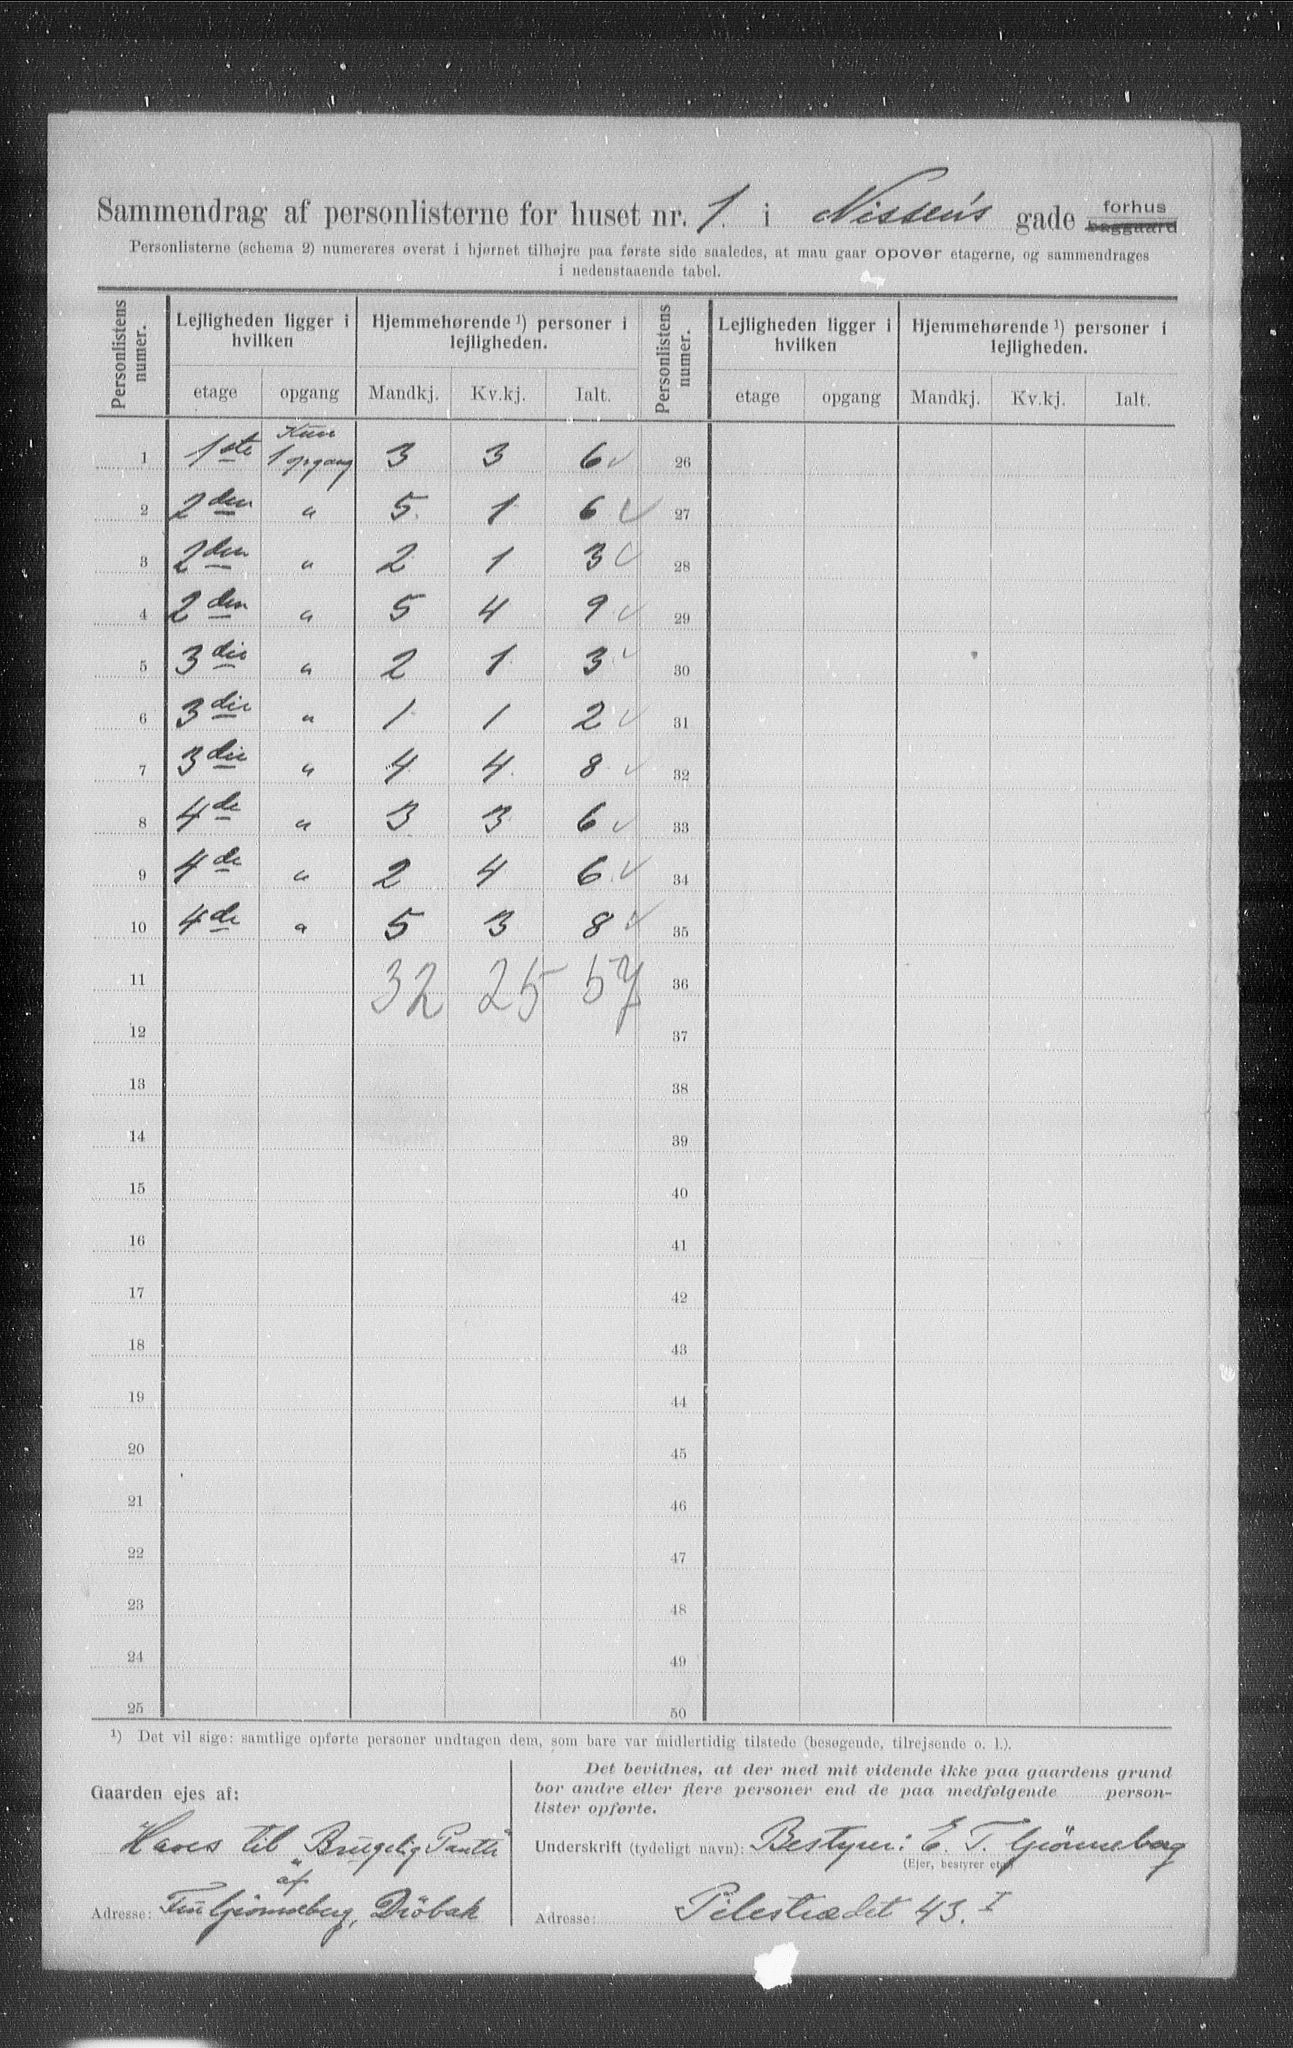 Sammendrag af personlisterne for huset nr. 1. i Nissen's gade forhus baggaard
Personlisterne (schema 2) numereres øverst i hjørnet tilhøjre paa første side saaledes, at man gaar opover etagerne, og sammendrages
i nedenstaaende tabel.
Personlistens numer. Lejligheden ligger i hvilken Hjemmehørende ¹) personer i lejligheden. Personlistens numer. Lejligheden ligger i hvilken Hjemmehørende ¹) personer i lejligheden.
etage opgang Mandkj. Kv.kj. Ialt. etage opgang Mandkj. Kv.kj. Ialt.
1 1ste Kun 1 opgang 3 3 6 ✓ 26
2 2den " 5 1 6 ✓ 27
3 2den " 2 1 3 ✓ 28
4 2den " 5 4 9 ✓ 29
5 3die " 2 1 3 ✓ 30
6 3die " 1 1 2 ✓ 31
7 3die " 4 4 8 ✓ 32
8 4de " 3 3 6 ✓ 33
9 4de " 2 4 6 ✓ 34
10 4de " 5 3 8 ✓ 35
11 32 25 57 36
12 37
13 38
14 39
15 40
16 41
17 42
18 43
19 44
20 45
21 46
22 47
23 48
24 49
25 50
¹) Det vil sige: samtlige opførte personer undtagen dem, som bare var midlertidig tilstede (besøgende, tilrejsende o. l.).
Gaarden ejes af:
Haves til Brugelig Pant
af
Adresse: Fru Gjønneberg, Drøbak
Det bevidnes, at der med mit vidende ikke paa gaardens grund
bor andre eller flere personer end de paa medfølgende person-
lister opførte.
Underskrift (tydeligt navn): Bestyrer: E. T. Gjønneberg
(Ejer, bestyrer etc.)
Adresse: Pilestrædet 43. I